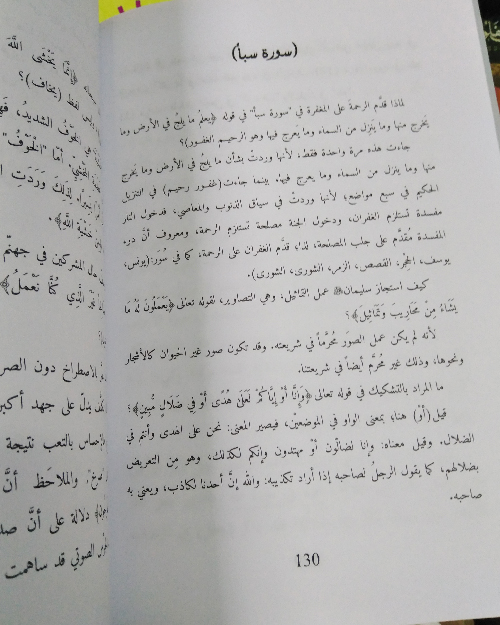 (سورة سبأ)
لماذا قدَّم الرحمة على المغفرة في "سورة سبأ" في قوله ﴿يعلمُ ما يلجُ في الأرض وما
يخرج منها وما يَنزل من السماء وما يعرج فيها وهو الرحيم الغفور﴾؟
جاءت هذه مرة واحدة فقط، لأنها وردتْ بشأن ما يلجُ في الأرض وما يَخرج
منها وما ينزل من السماء وما يعرج فيها. بينما جاءت (غفور رحيم) في التنزيل
الحكيم في سبع مواضع؛ لأنها وردتْ في سياق الذنوب والمعاصي، فدخول النار
مفسدة تستلزم الغفران، ودخول الجنة مصلحة تستلزم الرحمة، ومعروف أنَّ درء
المفسدة مُقدَّم على جلب المصلحة، لذا، قدَّم الغفران على الرحمة، كما في سُوَر: (يونس،
يوسف، الحِجْر، القصص، الزمر، الشورى، الشورى).
كيف استجاز سليمان عمل التماثيل، وهي التصاوير، لقوله تعالى ﴿يَعْمَلُونَ لَهُ مَا
يَشَاءُ مِنْ مَحَارِيبَ وَتَمَاثِيلَ﴾؟
لأنه لم يكن عمل الصوَر مُحرَّماً في شريعته. وقد تكون صور غير الحيوان كالأشجار
ونحوها، وذلك غير مُحرَّم أيضاً في شريعتنا.
ما المراد بالتشكيك في قوله تعالى ﴿وَإِنَّا أَوْ إِيَّاكُمْ لَعَلَىٰ هُدًى أَوْ فِي ضَلَالٍ مُبِينٍ﴾؟
قيل (أوْ) هنا، بمعنى الواو في الموضعين، فيصير المعنى: نحن على الهدى وأنتم في
الضلال. وقيل معناه: وإنا لضالّون أوْ مهتدون وإنكم لكذلك، وهو مِن التعريض
بضلالهم، كما يقول الرجلُ لصاحبه إذا أراد تكذيبه: والله إنَّ أحدنا لكاذب، ويعني به
صاحبه.
130